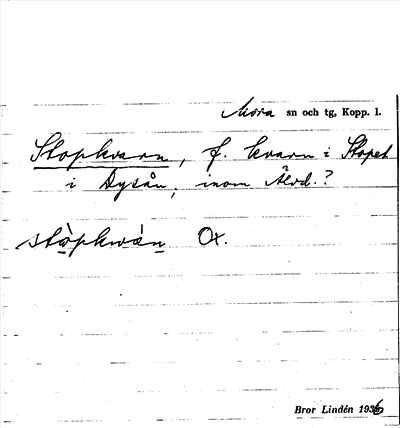 Mora sn och tg, Kopp. l.
Stopkvarn, f. kvarn i Stopet
i Dysån, inom Älvd.?
stòpkwàn Ox.
Bror Lindén 1936